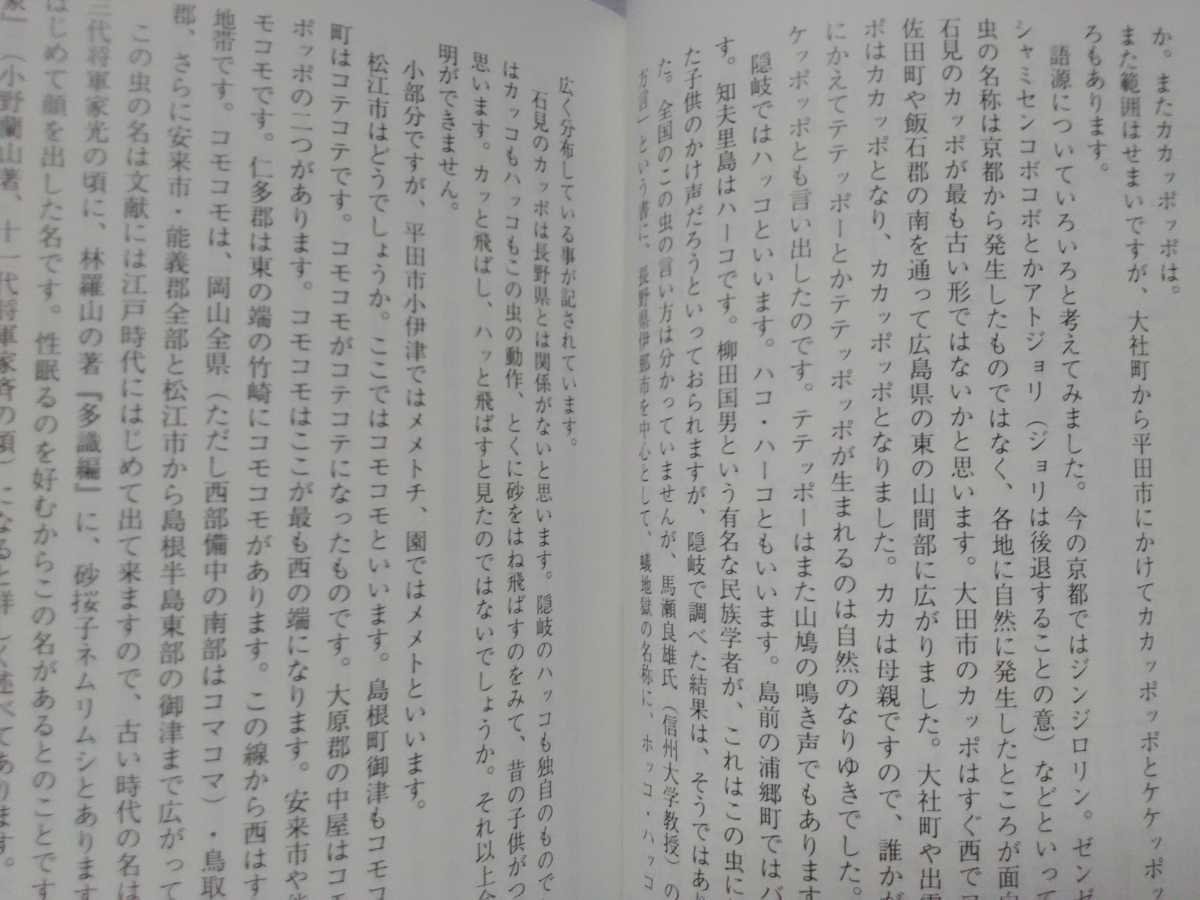 か。またカカッポッポは。
また範囲はせまいですが、大社町から平田市にかけてカカッポッポとケケッポ
ろもあります。
語源についていろいろと考えてみました。今の京都ではジンジロリン。ゼンゼ
シャミセンコボコボとかアトジョリ（ジョリは後退することの意）などといって
虫の名称は京都から発生したものではなく、各地に自然に発生したところが面白
石見のカッポが最も古い形ではないかと思います。大田市のカッポはすぐ西でコ
佐田町や飯石郡の南を通って広島県の東の山間部に広がりました。大社町や出雲
ポはカカッポとなり、カカッポッポとなりました。カカは母親ですので、誰かが
にかえてテテッポーとかテテッポッポが生まれるのは自然のなりゆきでした。
ケッポッポとも言い出したのです。テテッポーはまた山鳩の鳴き声でもあります
隠岐ではハッコといいます。ハコ・ハーコともいいます。島前の浦郷町ではバ
す。知夫里島はハーコです。柳田国男という有名な民族学者が、これはこの虫に
た子供のかけ声だろうといっておられますが、隠岐で調べた結果は、そうではあ
た。全国のこの虫の言い方は分かっていませんが、馬瀬良雄氏（信州大学教授）の
方言」という書に、長野県伊那市を中心として、蟻地獄の名称に、ホッコ・ハッコ
広く分布している事が記されています。
石見のカッポは長野県とは関係がないと思います。隠岐のハッコも独自のもので
はカッコもハッコもこの虫の動作、とくに砂をはね飛ばすのをみて、昔の子供がつ
思います。カッと飛ばし、ハッと飛ばすと見たのではないでしょうか。それ以上分
明ができません。
小部分ですが、平田市小伊津ではメメトチ、園ではメメトといいます。
松江市はどうでしょうか。ここではコモコモといいます。島根町御津もコモコ
町はコテコテです。コモコモがコテコテになったものです。大原郡の中屋はコモ
ポッポの二つがあります。コモコモはここが最も西の端になります。安来市や
モコモです。仁多郡は東の端の竹崎にコモコモがあります。この線から西はす
地帯です。コモコモは、岡山全県（ただし西部備中の南部はコマコマ）・鳥取
郡、さらに安来市・能義郡全部と松江市から島根半島東部の御津まで広がって
この虫の名は文献には江戸時代にはじめて出て来ますので、古い時代の名は
三代将軍家光の頃に、林羅山の著『多識編』に、砂挼子ネムリムシとあります
はじめて顔を出した名です。性眠るのを好むからこの名があるとのことです
家』（小野蘭山著、十一代将軍家斉の頃）になると詳しく述べてあります。